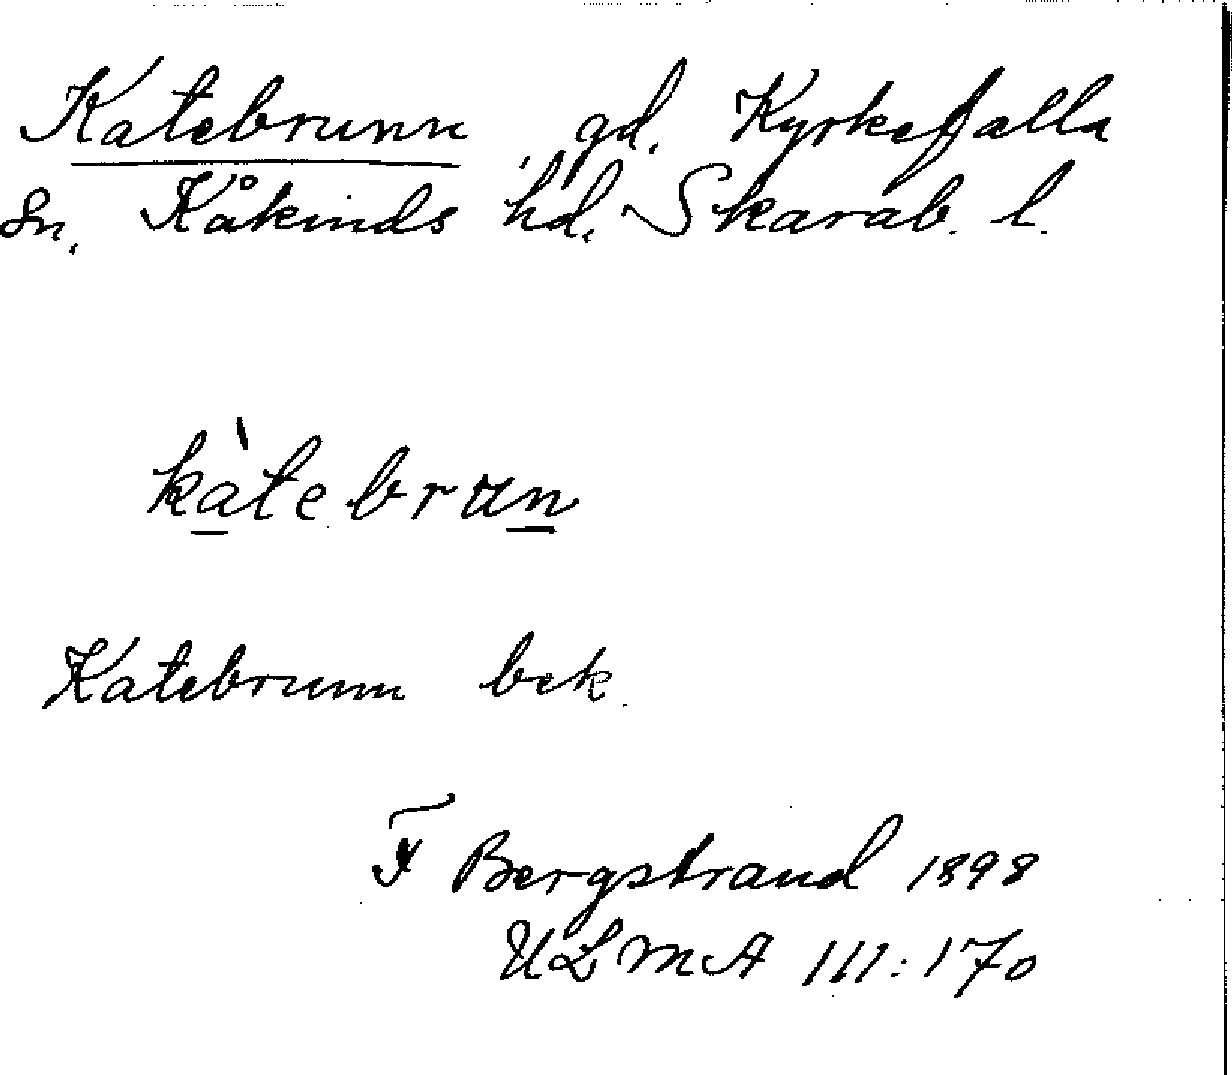 Katebrunn gd. Kyrkefalla
sn. Kåkinds hd. Skarab. l.
kàtebrun
Katebrunn bek.
F Bergstrand 1898
ULMA 111:170